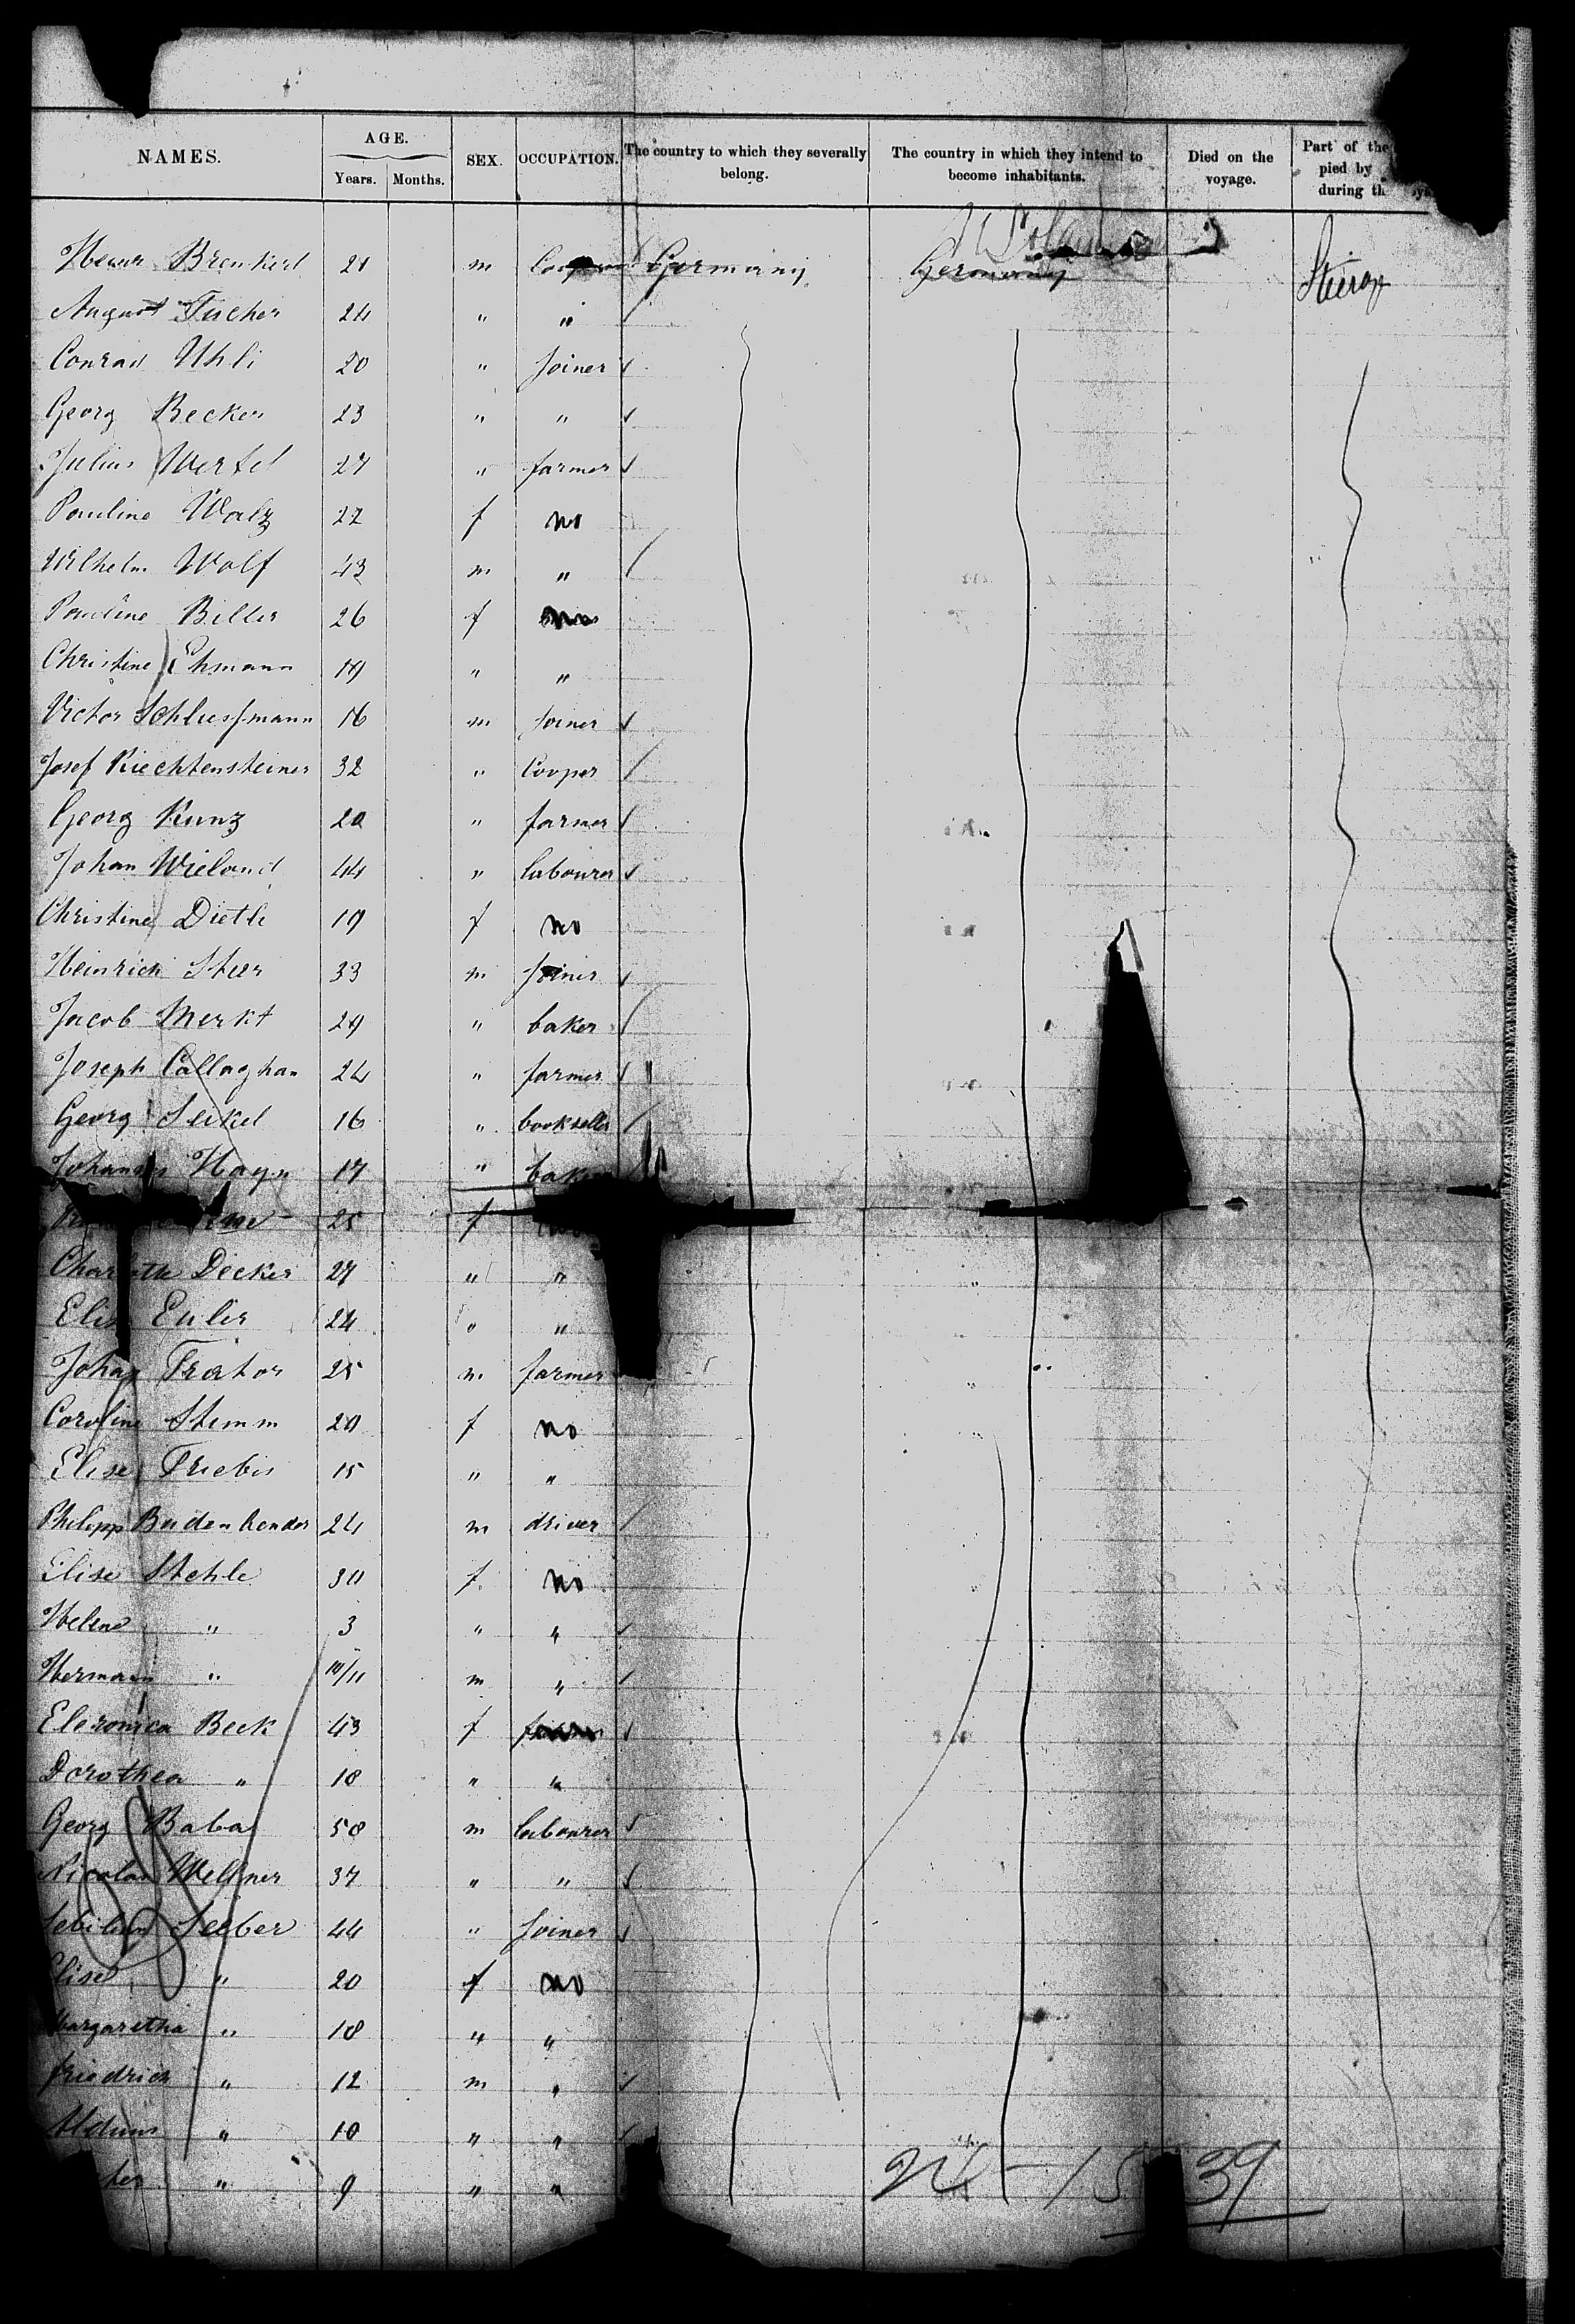 NAMES. AGE. Years. Months. SEX. OCCUPATION. The country to which they severally belong. The country in which they intend to become inhabitants. Died on the voyage. Part of the pied by during th
Brenkert 21 m Germany Germany
August Fischer 24 " "
Conrad Uhli 20 " Joiner
Georg Becker 23 " "
Julius Wertel 27 " farmer
Pauline Walz 22 f no
Wilhelm Wolf 43 m "
Pauline Biller 26 f
Christine Ehmann 19 " "
Victor Schliessmann 16 m Joiner
Josef Riechtensteiner 32 " Cooper
Georg Kunz 20 " farmer
Johan Wieland 44 " labourer
Christine Dietle 19 f no
Heinrich Steer 33 m Joiner
Jacob Merkt 29 " baker
Joseph Callaghan 24 " farmer
Georg Seikel 16 " bookseller
Johannes Hayn 17 "
25 f
Charlotte Decker 27 " "
Elise Euler 24 " "
Johan Trator 25 m farmer
Caroline Stemm 20 f no
Elise Friebis 15 " "
Philipp Budenbender 24 m driver
Elise Stehle 34 f. no
Helene " 3 " "
Hermann " 10/11 m "
Eleronica Beck 43 f
Dorothea " 18 " "
Georg Babal 58 m labourer
Nicolas Wellner 37 " "
Seeber 44 " Joiner
Elise " 20 f no
Margaretha " 18 " "
Friedrich " 12 m "
" 10 " "
" 9 " "
39